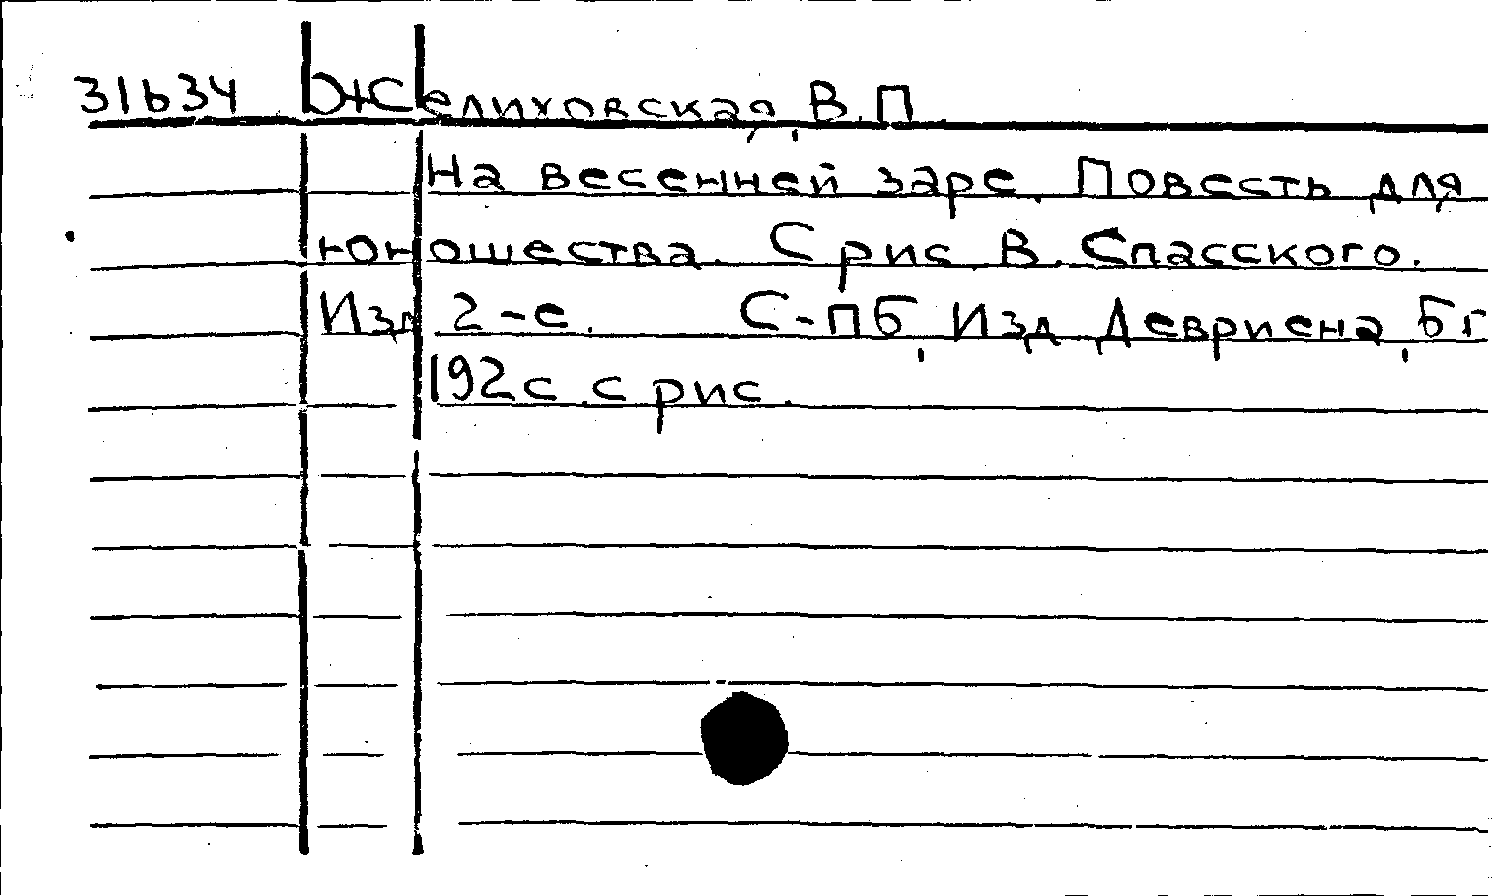 31634 Желиховская, В.П.
На весенней заре. Повесть для
юношества. С рис. В. Спасского.
Изд. 2-е. С-ПБ, Изд. Девриена, б г
192 с. с рис.